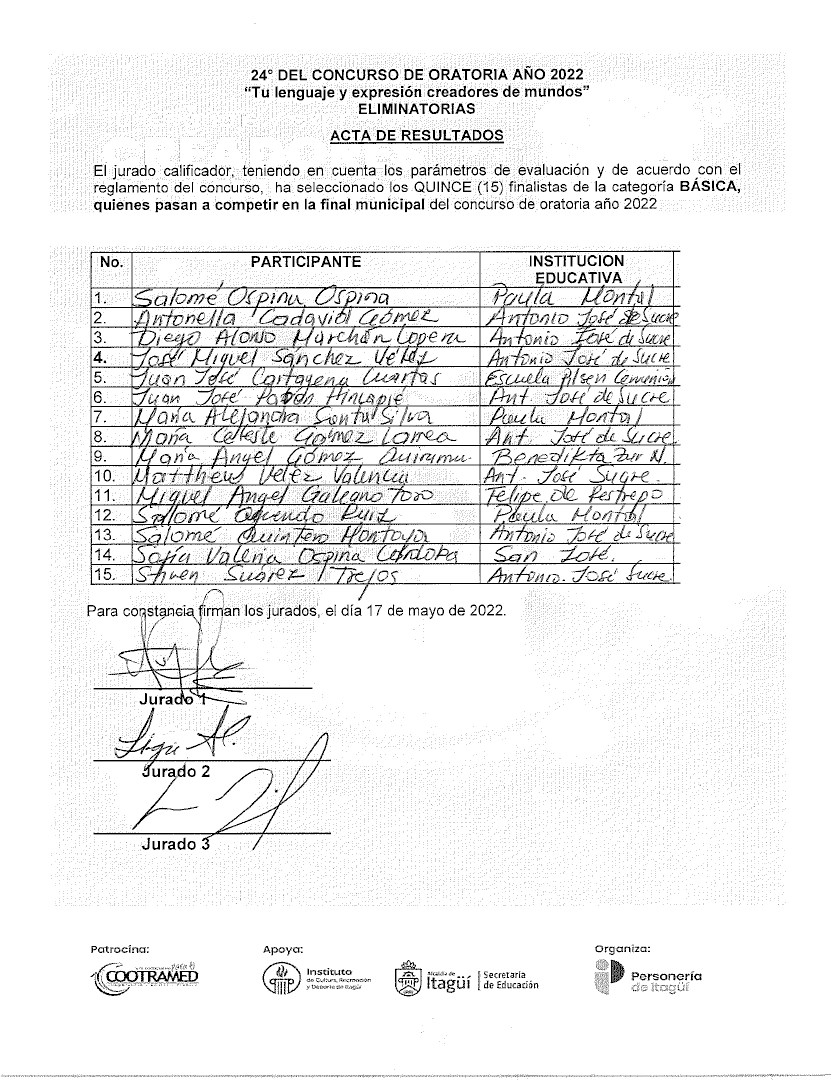 24° DEL CONCURSO DE ORATORIA AÑO 2022
“Tu lenguaje y expresión creadores de mundos”
ELIMINATORIAS
ACTA DE RESULTADOS
El jurado calificador, teniendo en cuenta los parámetros de evaluación y de acuerdo con el
reglamento del concurso, ha seleccionado los QUINCE (15) finalistas de la categoría BÁSICA,
quienes pasan a competir en la final municipal del concurso de oratoria año 2022
No. PARTICIPANTE INSTITUCION EDUCATIVA
1. Salomé Ospina Ospina Paula Montal
2. Antonella Cadavid Gómez Antonio José de Sucre
3. Diego Alonso Marchán Lopera Antonio José de Sucre
4. José Miguel Sánchez Vélez Antonio José de Sucre
5. Juan José Cartagena Cuartas Escuela Pilsen
6. Juan José Pabón Hincapié Ant José de Sucre
7. María Alejandra Silva Paula Montal
8. María Celeste Gómez Larrea Ant. José de Sucre
9. María Angel Gómez Benedikta Zur N.
10. Matthews Velez Valencia Ant. José Sugre.
11. Miguel Angel Galeano Toro Felipe de Restrepo
12. Salomé Oquendo Ruiz Paula Montal
13. Salomé Quintero Montoya Antonio José de Sucre
14. Sofía Valeria Ospina Córdoba San José.
15. Stiven Suárez Trejos Antonio. José Sucre.
Para constancia firman los jurados, el día 17 de mayo de 2022.
Jurado 1
Jurado 2
Jurado 3
Patrocina: Apoya: Organiza:
COOTRAMED
Instituto
de Cultura, Recreación
y Deporte de Itagüí
Alcaldía de
Itagüí
Secretaría
de Educación
Personería
de Itagüí